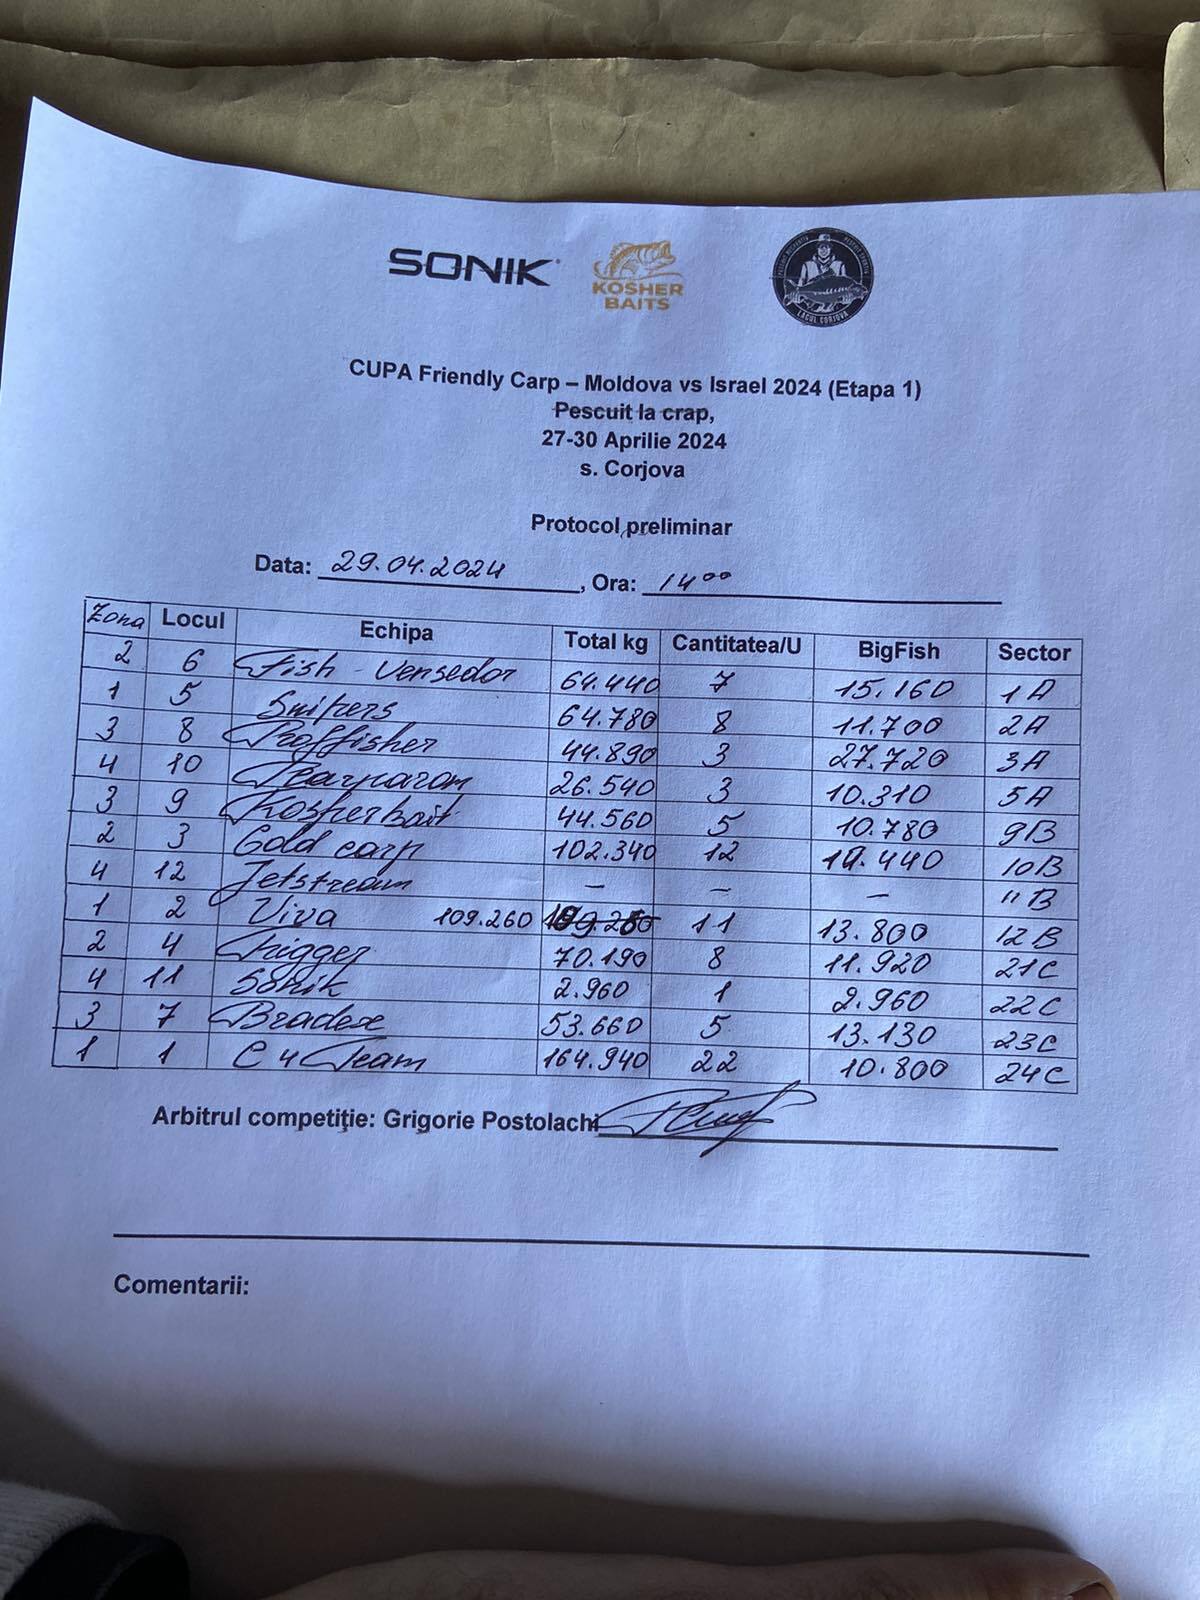 SONIK
KOSHER
BAITS
LACUL CORJOVA
CUPA Friendly Carp – Moldova vs Israel 2024 (Etapa 1)
Pescuit la crap,
27-30 Aprilie 2024
s. Corjova
Protocol preliminar
Data: 29.04.2024, Ora: 14 00
Zona Locul Echipa Total kg Cantitatea/U BigFish Sector
2 6 Fish-Vensedor 64.440 7 15.160 1A
1 5 Snipers 64.780 8 11.700 2A
3 8 Proffisher 44.890 3 27.720 3A
4 10 26.540 3 10.310 5A
3 9 Kosherbait 44.560 5 10.780 9B
2 3 Gold carp 102.340 12 440 10B
4 12 Jetstream – – – 11B
1 2 Viva 109.260 11 13.800 12B
2 4 70.190 8 11.920 21C
4 11 Sonik 2.960 1 2.960 22C
3 7 Bradexe 53.660 5 13.130 23C
1 1 C4 Team 164.940 22 10.800 24C
Arbitrul competiție: Grigorie Postolachi
Comentarii: